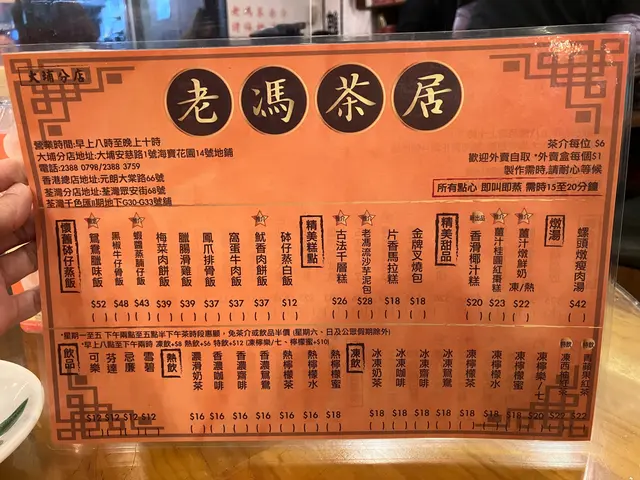 大埔分店
老馮茶居
營業時間:早上八時至晚上十時
大埔分店地址:大埔安慈路1號海寶花園14號地鋪
電話:2388 0798/2388 3759
香港總店地址:元朗大棠路66號
荃灣分店地址:荃灣眾安街68號
荃灣千色匯II期地下G30-G33號鋪
茶介每位 $6
歡迎外賣自取,外賣盒每個$1
製作需時,請耐心等候
所有點心 即叫即蒸 需時15至20分鐘
懷舊砵仔蒸飯
鴛鴦臘味飯 $52
黑椒牛仔骨飯 $48
蝦醬蒸腩仔飯 $43
梅菜肉餅飯 $39
臘腸滑雞飯 $39
鳳爪排骨飯 $37
窩蛋牛肉飯 $37
魷魚肉餅飯 $37
砵仔蒸白飯 $12
精美糕點
古法千層糕 $26
老馮流沙芋泥包 $28
片香馬拉糕 $18
金牌叉燒包 $18
精美甜品
香滑椰汁糕 $20
薑汁桂圓紅棗糕 $23
薑汁燉鮮奶 凍/熱 $22
燉湯
螺頭燉瘦肉湯 $42
*星期一至五 下午兩點至五點半下午茶時段惠顧,免茶介或飲品半價 (星期六、日及公眾假期除外)
*早上八點至下午兩時 凍飲+$8 熱飲+$6 特飲+$12 (凍檸樂/七、檸檬蜜+$10)
飲品
可樂 $12
芬達 $12
忌廉 $12
雪碧 $12
熱飲
濃滑奶茶 $16
香濃咖啡 $16
香濃齋啡 $16
香濃鴛鴦 $16
熱檸檬茶 $16
熱檸檬水 $16
熱檸檬蜜 $18
凍飲
冰凍奶茶 $18
冰凍咖啡 $18
冰凍齋啡 $18
冰凍鴛鴦 $18
凍檸檬茶 $18
凍檸檬水 $18
凍檸檬蜜 $20
凍檸樂/七 $20
凍西柚紅茶
青蘋果紅茶 $22